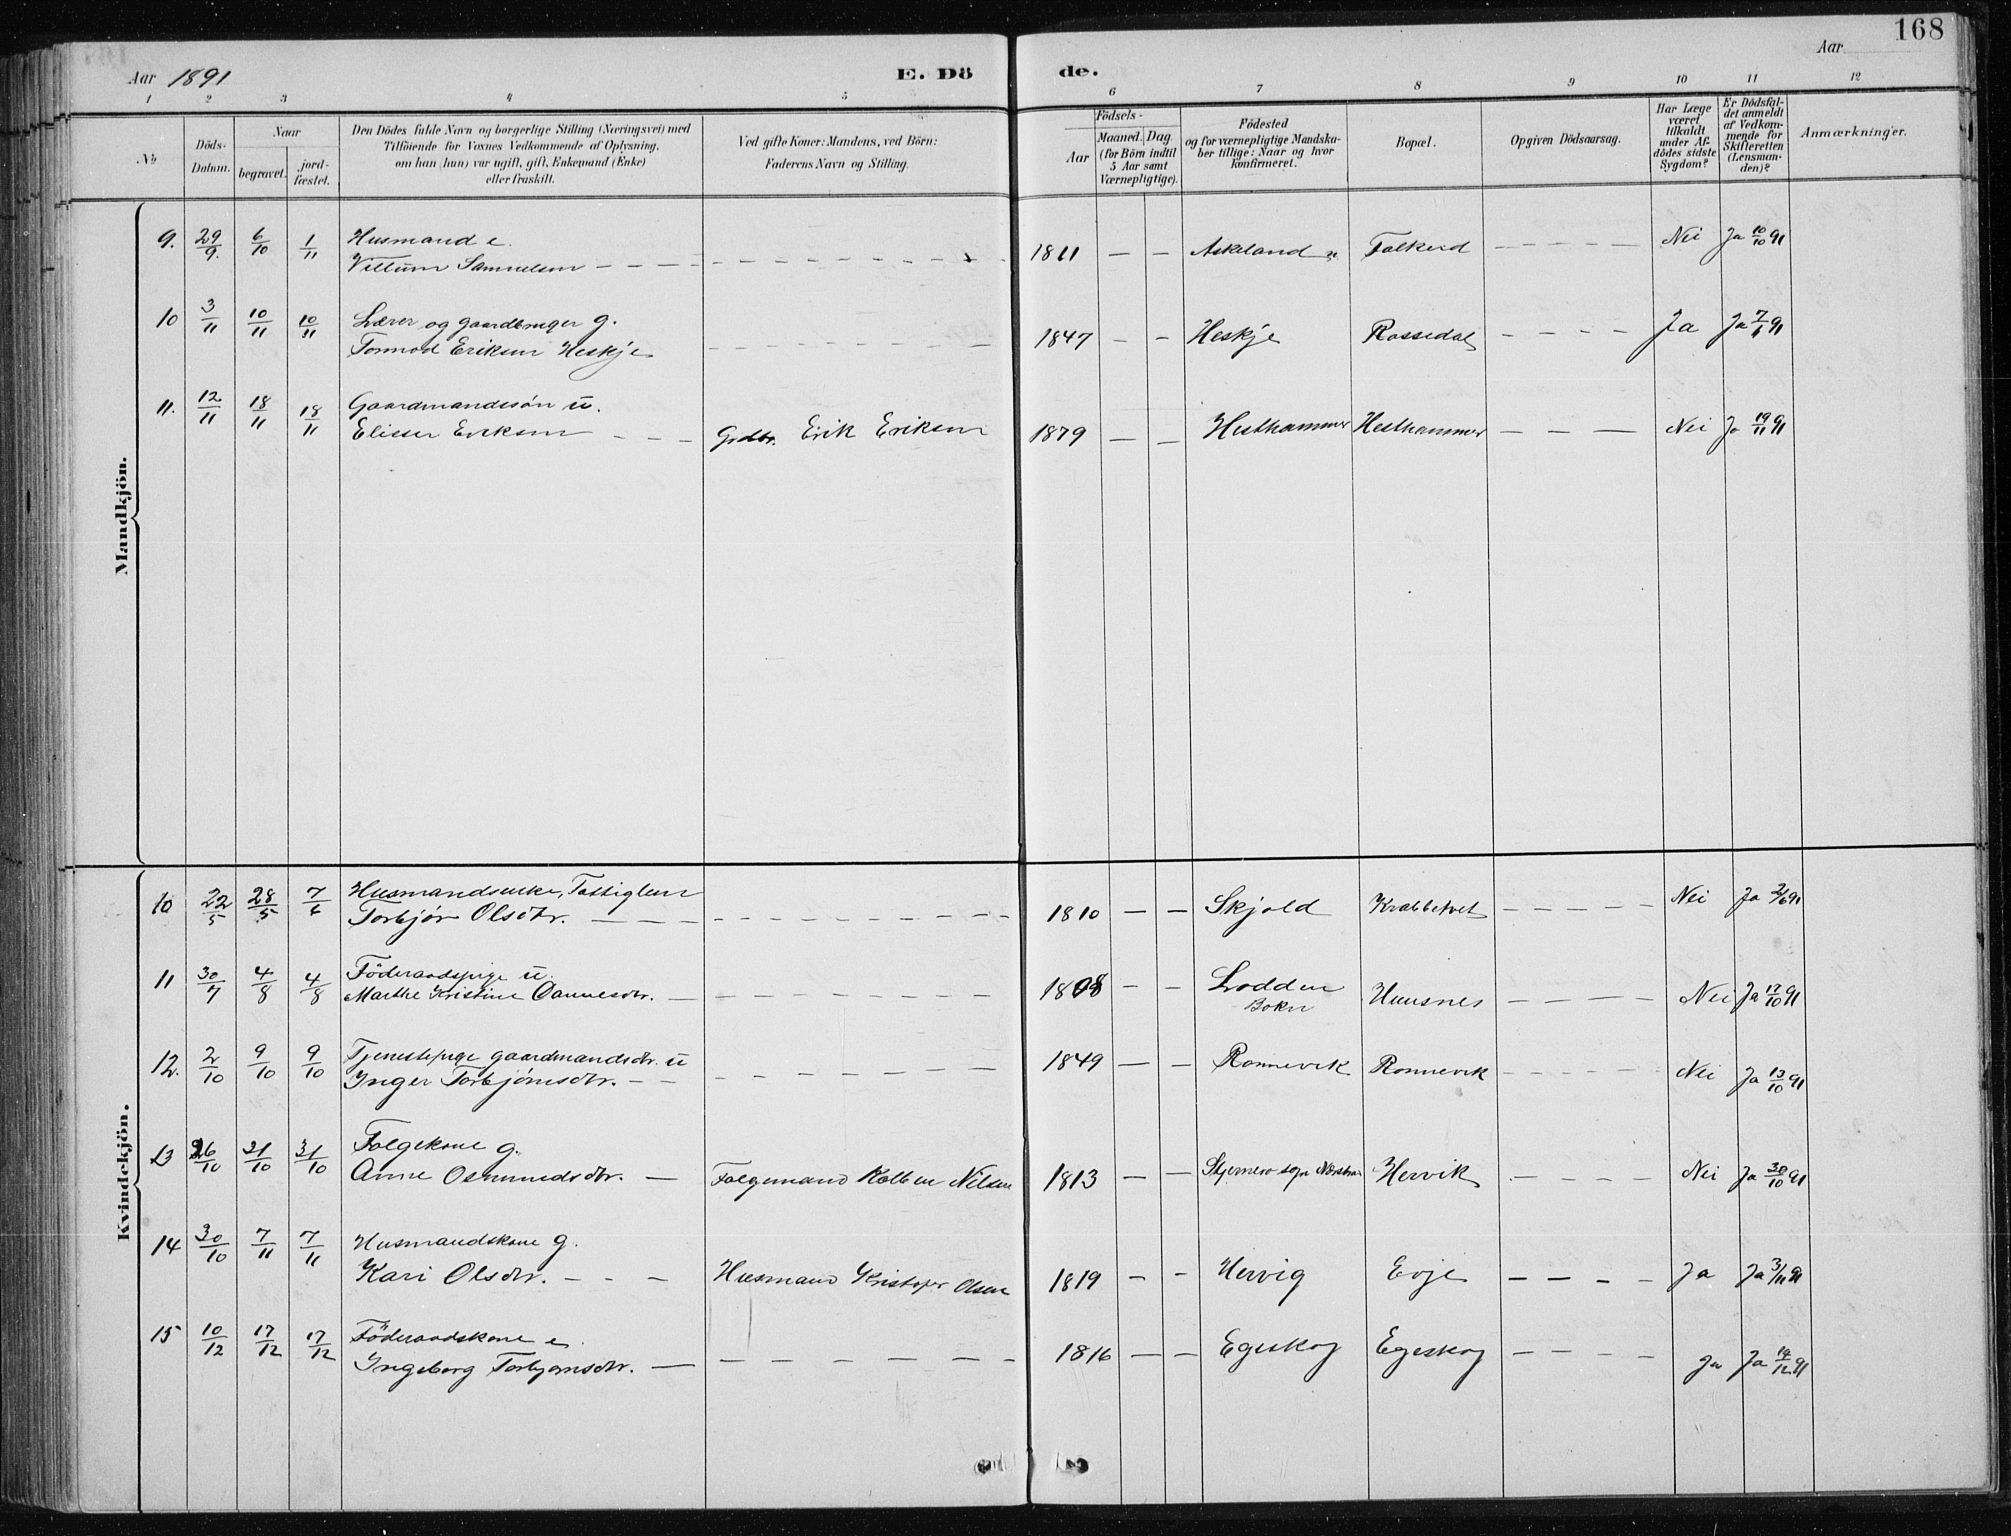 168
Aar 1891
E. Dö
de.
Aar
1 2 3 4 5 6 7 8 9 10 11 12
№
Döds-
Datum.
Naar
begravet.
jord-
fæstet.
Den Dödes fulde Navn og borgerlige Stilling (Næringsvei) med
Tilföiende for Voxnes Vedkommende af Oplysning,
om han (hun) var ugift, gift, Enkemand (Enke)
eller fraskilt.
Ved gifte Koner: Mandens, ved Börn:
Faderens Navn og Stilling.
Födsels-
Aar
Maaned. Dag.
(for Börn indtil
5 Aar samt
Værnepligtige).
Födested
og for værnepligtige Mandska-
ber tillige: Naar og hvor
konfirmeret.
Bopæl.
Opgiven Dödsaarsag.
Har Læge
været
tilkaldt
under Af-
dödes sidste
Sygdom?
Er Dödsfal-
det anmeldt
af Vedkom-
mende for
Skifteretten
(Lensman-
den)?
Anmærkninger.
Mandkjön.
9. 29/9. 6/10 1/11 Husmand e.
Samuelsen 1811 — — Askeland Falkeid Nei Ja 10/10 91
10 3/11 10/11 10/11 Lærer og gaardbruger g.
Tormod Eriksen Heskje 1847 — — Heskje Rossedal Ja Ja 91
11. 12/11 18/11 18/11 Gaardmandssön u.
Eriksen — — — Grdbr. Erik Eriksen 1879 — — Hesthammer Hesthammer — — — Nei Ja 19/11 91
Kvindekjön.
10 22/5 28/5 7/6 Husmandsenke, Fattiglem
Torbjør Olsdtr. — 1810 — — Skjold Nei Ja 2/6 91
11 30/7 4/8 4/8 Föderaadspige u.
Marthe Kristine — 1808 — — Lodden Huusnes — — — Nei Ja 91
Bokn
12. 2/10 9/10 9/10 Tjenestepige gaardmandsdtr. u
Inger Torbjörnsdtr. — — 1849 — — Rønnevik Rønnevik Nei Ja 13/10 91
13 26/10 31/10 31/10 Folgekone g.
Anne Osmundsdtr. — Folgemand Kolben Nilsen 1813 — — Hervik Nei Ja 30/10 91
14 30/10 7/11 7/11 Husmandskone g.
Kari Olsdtr. — — — Husmand Kristofer Olsen 1819 — — Hervig Evje — — — — Ja Ja 3/11 91
15 10/12 17/12 17/12 Föderaadskone e.
Ingeborg Torbjørnsdtr. — 1816 — — Egeskog Egeskog Ja Ja 91